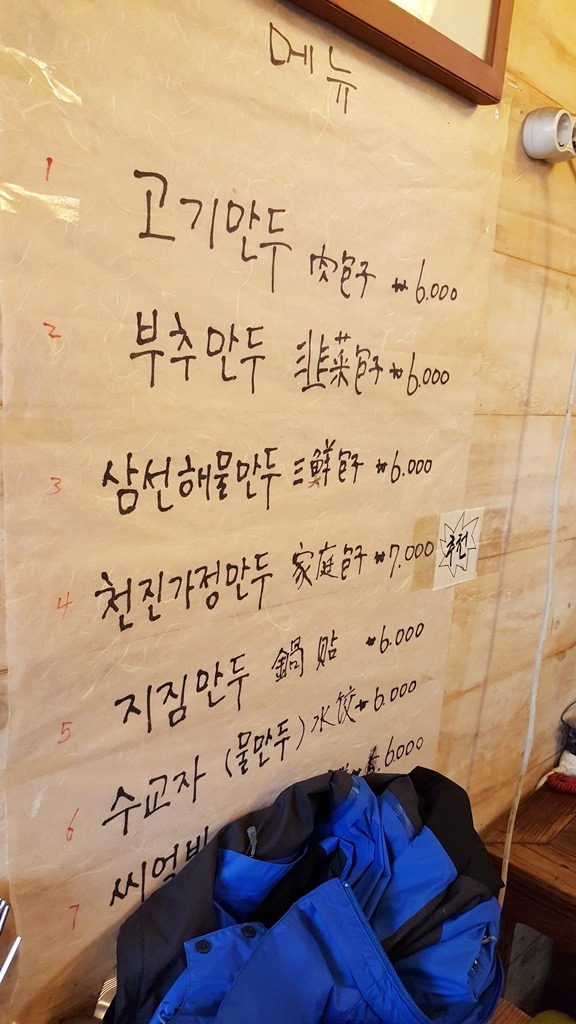 메뉴
1 고기만두 肉包子 ₩6.000
2 부추만두 韭菜包子 ₩6.000
3 삼선해물만두 三鮮包子 ₩6.000
4 천진가정만두 家庭包子 ₩7.000 추천
5 지짐만두 鍋貼 ₩6.000
6 수교자 (물만두) 水饺 ₩6.000
7 씨엥빙 6.000